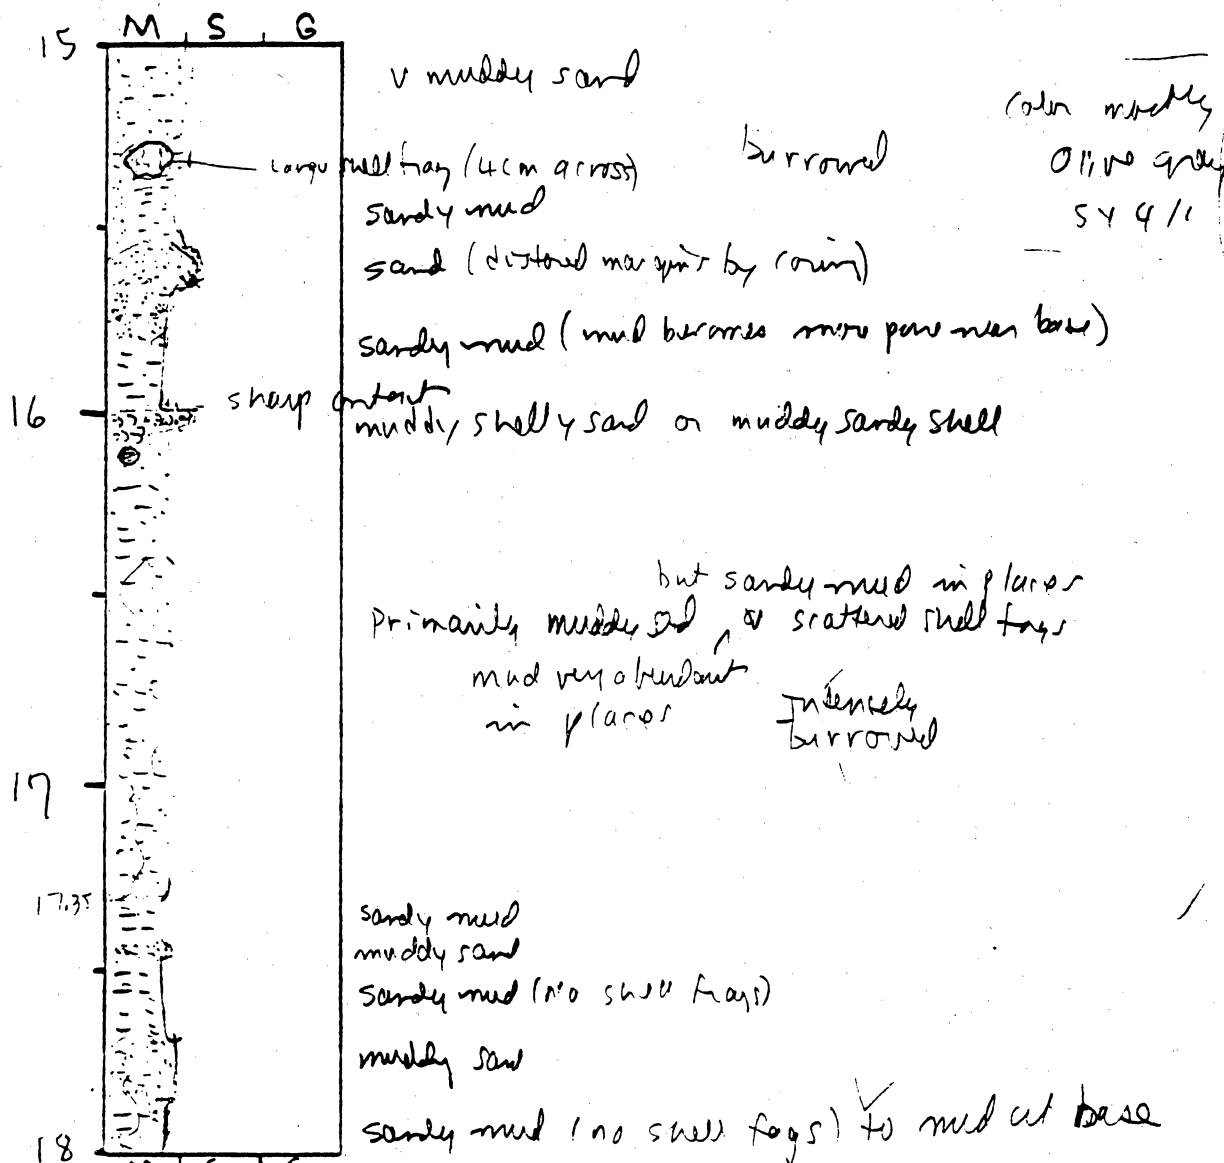 M S G
15
v muddy sand
color mostly
olive gray
5Y 4/1
burrowed
large shell frag (4cm across)
sandy mud
sand (distored margins by coring)
sandy mud (mud becomes more pure near base)
16
sharp contact
muddy shelly sand or muddy sandy shell
but sandy mud in places
Primarily muddy sd, w scattered shell frags
mud very abundant
in places
Intensely
burrowed
17
17.35
sandy mud
muddy sand
sandy mud (no shell frags)
muddy sand
sandy mud (no shell frags) to mud at base
18